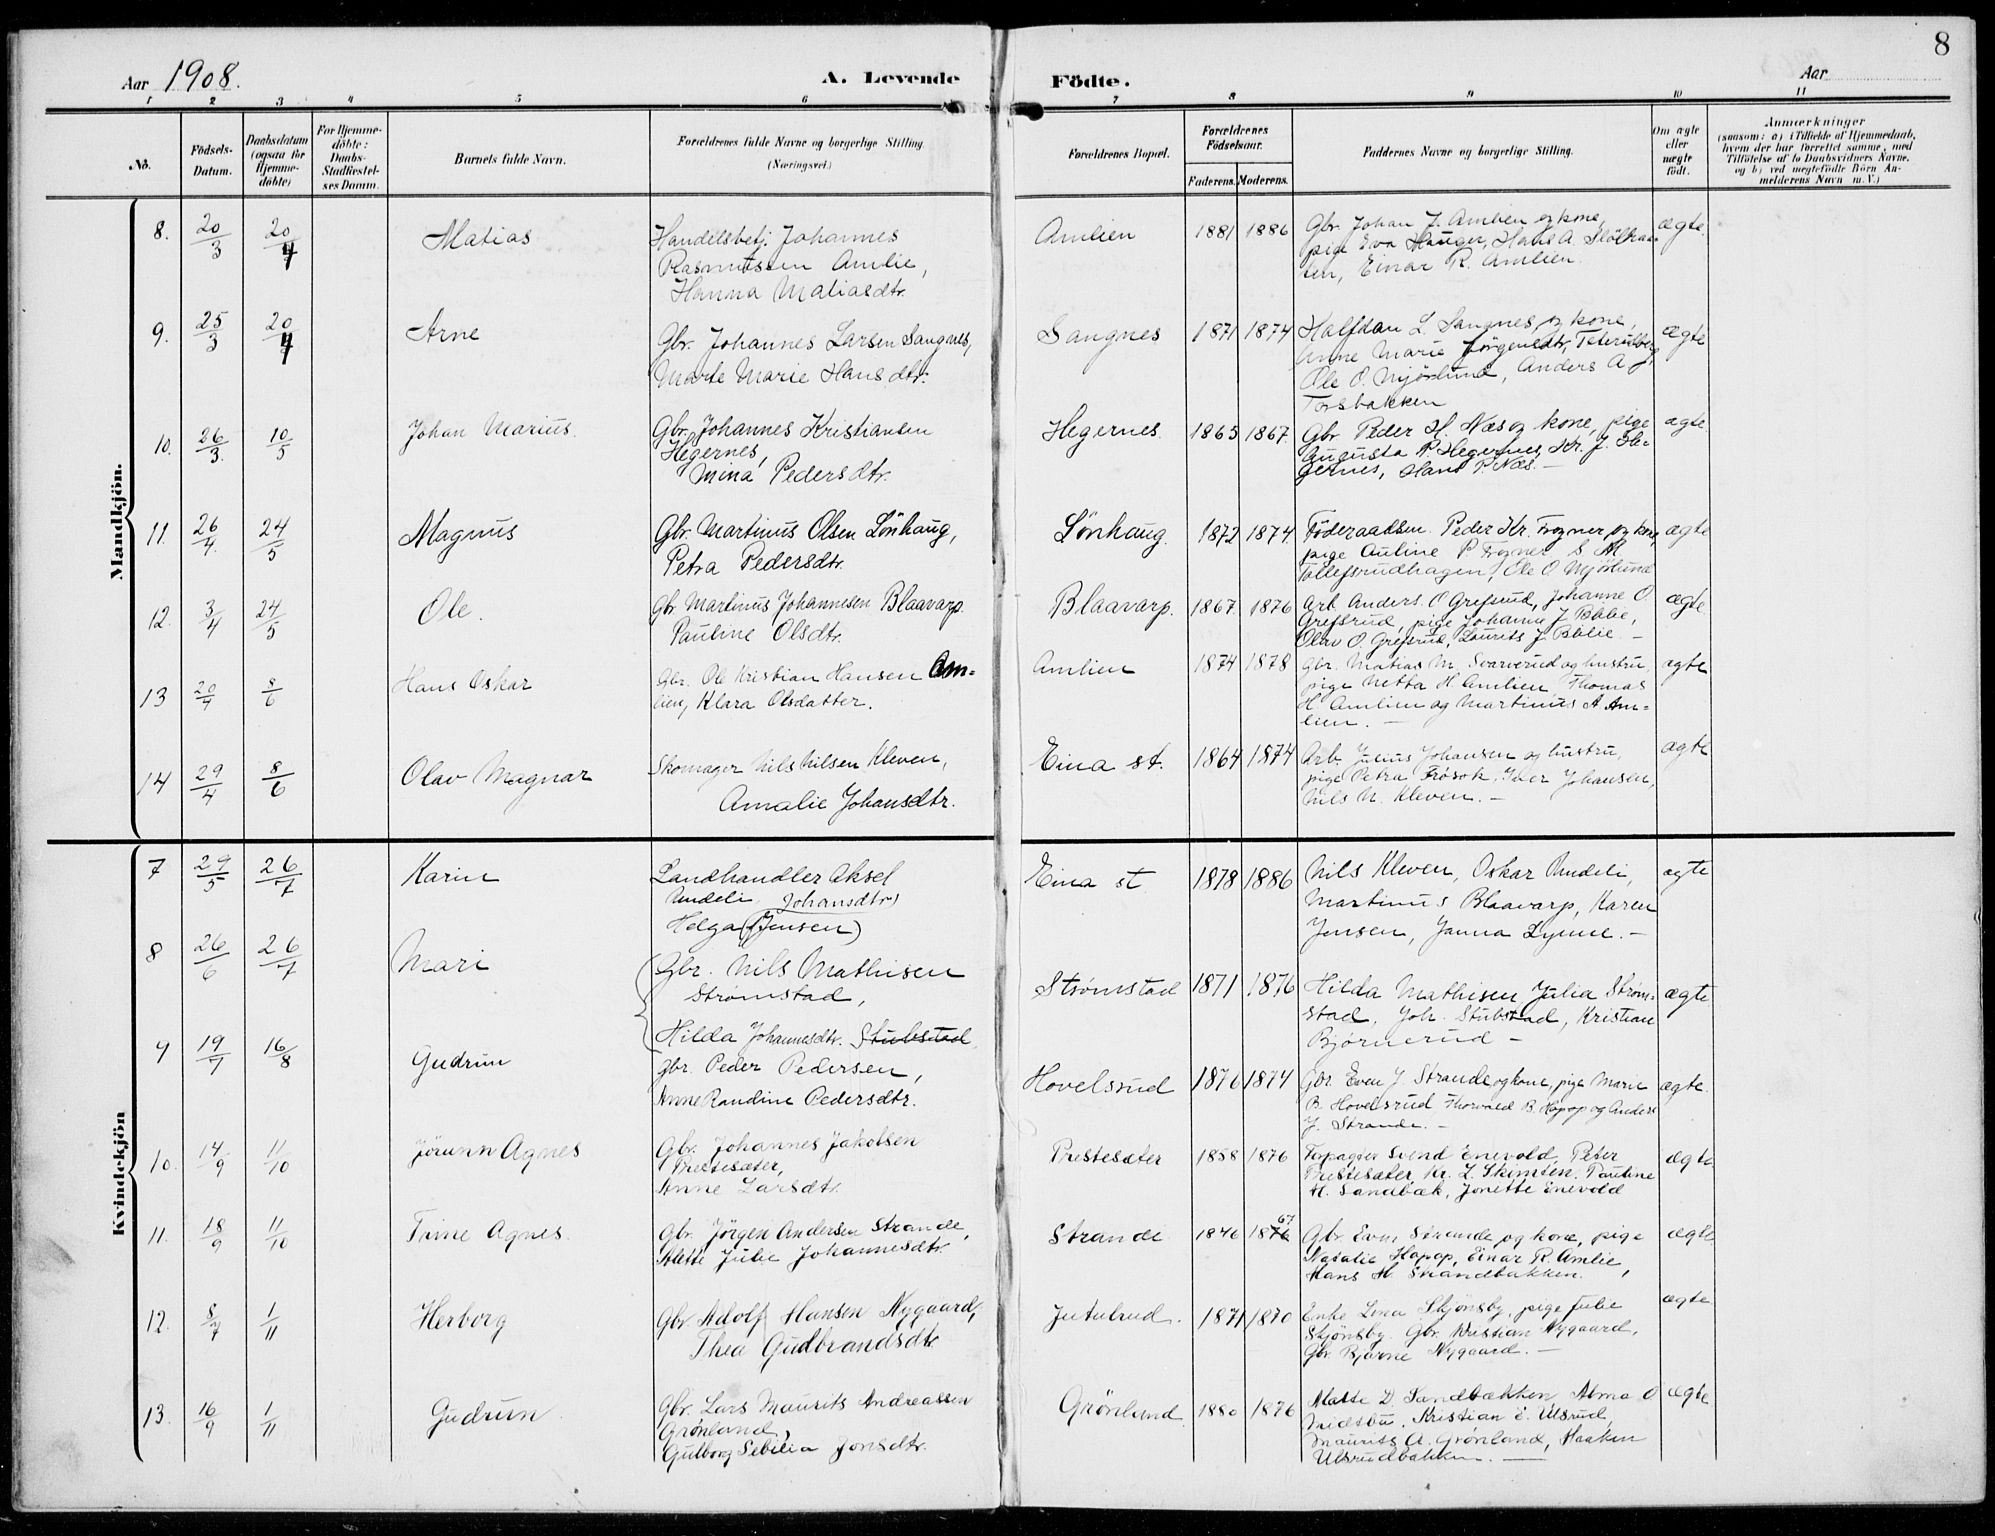 8
Aar 1908.
A. Levende Födte.
Aar
1 2 3 4 5 6 7 8 9 10 11
No.
Födsels-Datum.
Daabsdatum (ogsaa for Hjemmedöbte)
For Hjemmedöbte: Daabs-Stadfæstelses Datum.
Barnets fulde Navn.
Forældrenes fulde Navne og borgerlige Stilling (Næringsvei.)
Forældrenes Bopæl.
Forældrenes Födselsaar.
Faderens. Moderens.
Faddernes Navne og borgerlige Stilling.
Om ægte eller uægte födt.
Anmærkninger
(saasom: a) i Tilfælde af Hjemmedaab, hvem der har forrettet samme, med Tilföielse af to Daabsvidners Navne, og b) ved uægtefödte Börn Anmelderens Navn m. V.)
Mandkjön.
8. 20/3 20/4 Matias
Handelsbetj. Johannes
Rasmussen Amlie,
Hanna Matiasdtr.
Amlien 1881 1886
Gbr. Johan J. Amlien og kone,
pige Eva Hauger, Hans A.
Einar R. Amlien.
ægte.
9. 25/3 20/4 Arne
Gbr. Johannes Larsen Sangnes,
Marte Marie Hansdtr.
Sangnes 1871 1874
Halfdan L. Sangnes og kone,
Anne Marie Jörgensdtr,
Ole O. Mjörlund, Anders A
Torsbakken
ægte
10. 26/3. 10/5 Johan Marius.
Gbr. Johannes Kristiansen
Hegernes,
Mina Pedersdtr.
Hegernes. 1865 1867
Gbr. Peder H. Næs og kone, pige
Augusta P. Hegernes, Kr. J. He-
gernes, Hans P. Næs. –
ægte.
11. 26/4. 24/5 Magnus
Gbr. Martinus Olsen Lönhaug,
Petra Pedersdtr.
Lönhaug. 1872 1874
Föderaadsm. Peder Kr. Frogner og kone,
pige Auline P. Frogner, S. M.
Tollefsrudhagen, Ole O. Mjörlund
ægte
12. 3/4 24/5 Ole.
Gbr. Martinus Johannesen Blaavarp.
Pauline Olsdtr.
Blaavarp. 1867 1876
Arb. Anders O Grefsrud, Johanne O.
Grefsrud, pige Johanne J.
Olav O. Grefsrud, Laurits J. –
ægte
13 20/4 8/6 Hans Oskar
Gbr. Ole Kristian Hansen Am=
lien, Klara Olsdatter.
Amlien 1874 1878
Gbr. Matias M. Svarverud og hustru,
pige Netta H. Amlien, Thomas
H. Amlien og Martinius A Am=
lien. –
ægte
14 29/4 8/6 Olav Magnar
Skomager Nils Nilsen Kleven,
Amalie Johansdtr.
Eina st. 1864 1874
Arb. Julius Johansen og hustru,
pige Petra Frösok, Iver Johansen,
Nils N. Kleven. –
ægte
Kvindekjön
7 29/5 26/7 Karin
Landhandler Aksel
Undeli Johansdtr)
Helga (Jensen)
Eina st 1878 1886
Nils Kleven, Oskar Undeli,
Martinus Blaavarp, Karen
Jensen, Janna Lynne. –
ægte
8 26/6 26/7 Mari
Gbr. Nils Mathisen
Strømstad,
Hilda Johannesdtr. Stubstad
Strömstad 1871 1876
Hilda Mathisen, Julia Ström=
stad, Joh. Stubstad, Kristian
Bjørnerud –
ægte
9 19/7 16/8 Gudrun
gbr. Peder Pedersen,
Anne Randine Pedersdtr.
Hovelsrud 1876 1874
Gbr. Even J. Strande og kone, pige Marie
B. Hovelsrud Thorvald B. Hopop og Anders
J. Strande. –
ægte.
10. 14/9 11/10 Jörunn Agnes
Gbr. Johannes Jakobsen
Prestesæter,
Anne Larsdtr.
Prestesæter 1858 1876
Forpagter Svend Enevold, Peter
Prestesæter, Kr. L. Skimten, Pauline
H. Sandbæk, Jonette Enevold
ægte
11. 18/9 11/10 Trine Agnes.
Gbr. Jörgen Andersen Strande,
Alette Julie Johannesdtr.
Strande 1846 1876 67
Gbr. Even Strande og kone, pige
Natalie Hopop, Einar R. Amlie,
Hans M. Strandbakken.
ægte
12. 8/7 1/11 Herborg
Gbr. Adolf Hansen Nygaard,
Thea Gudbrandsdtr.
Jutulrud. 1871 1870
Enke Lina Skjönsby, pige Julie
Skjönsby. Gbr. Kristian Nygaard,
Gbr. Bjarne Nygaard. –
ægte
13. 16/9 1/11 Gudrun.
Gbr. Lars Maurits Andreassen
Grönland,
Gulborg Sebilia Jonsdtr.
Grönland 1880 1876
Matte D. Sandbækken, Alma O
Midtsbu, Kristian E. Ulsrud,
Maurits A. Grönland, Haaken
Ulsrudbakken. –
ægte